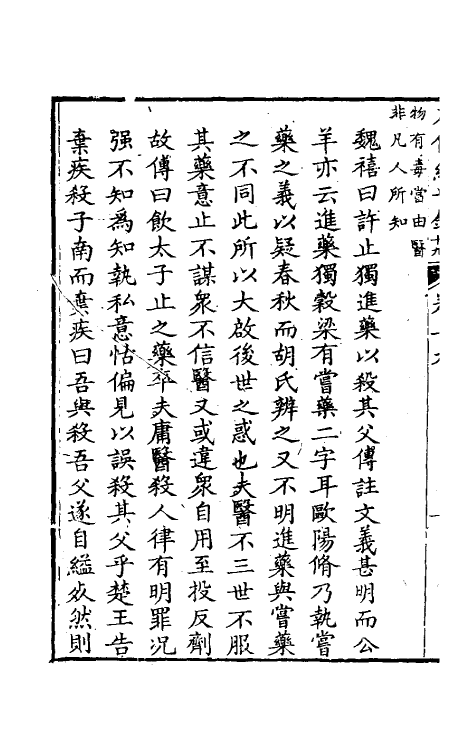 物有毒當由醫
非凡人所知
魏禧曰許止獨進藥以殺其父傳註文義甚明而公
羊亦云進藥獨穀梁有嘗藥二字耳歐陽脩乃執嘗
藥之義以疑春秋而胡氏辨之又不明進藥與嘗藥
之不同此所以大啟後世之惑也夫醫不三世不服
其藥意止不謀衆不信醫又或違衆自用至投反劑
故傳曰飲太子止之藥卒夫庸醫殺人律有明罪况
强不知爲知執私意怙偏見以誤殺其父乎楚王告
棄疾殺子南而棄疾曰吾與殺吾父遂自縊歿然則